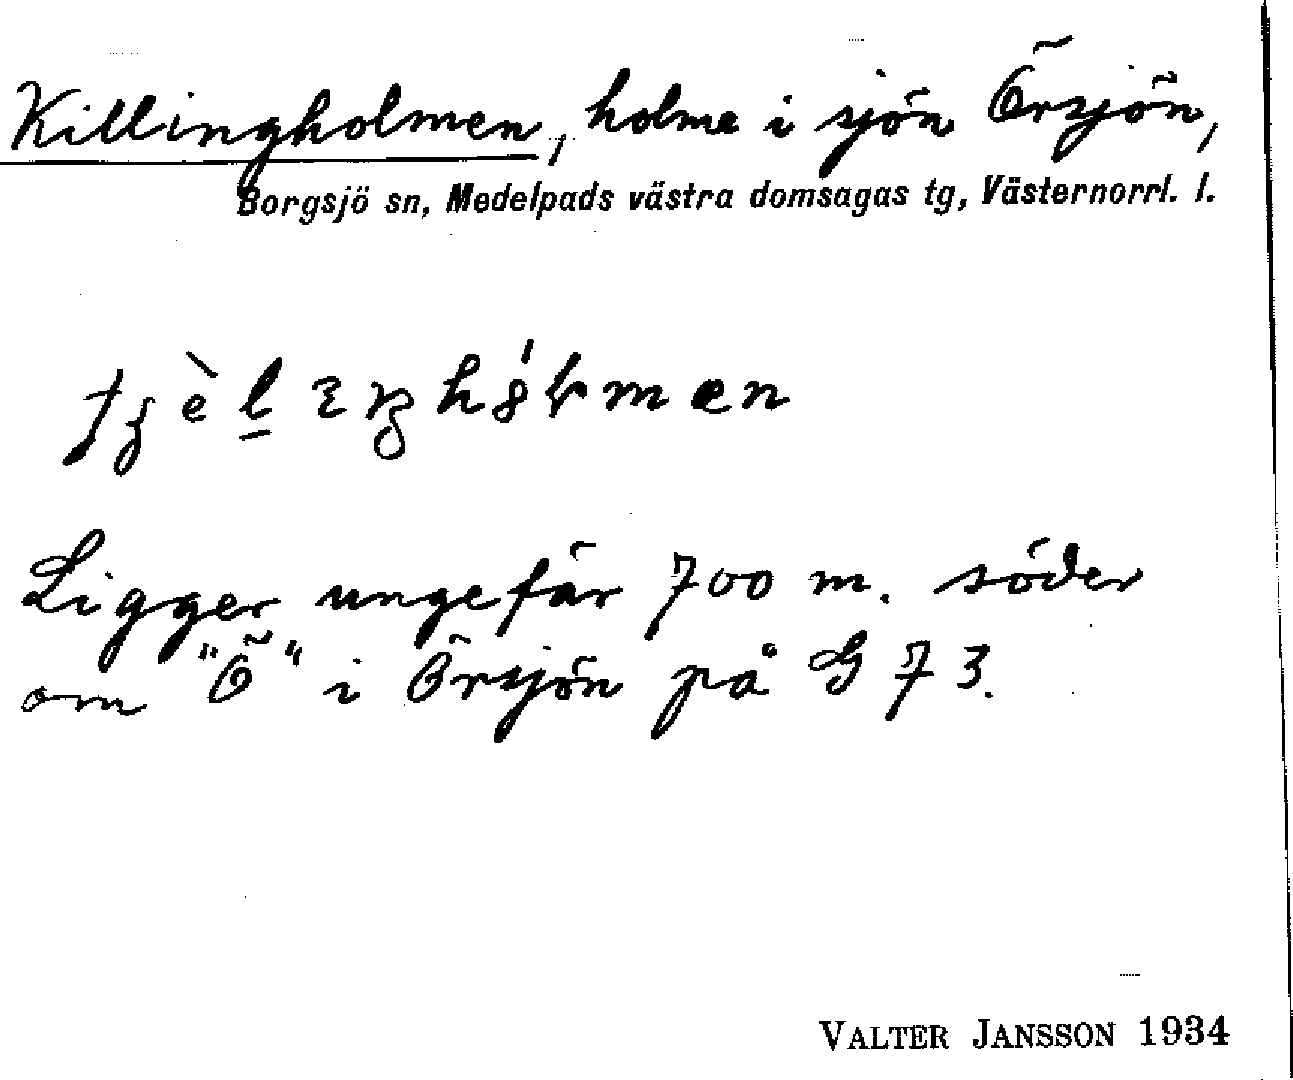 Killingholmen, holme i sjön Örsjön,
Borgsjö sn, Medelpads västra domsagas tg, Västernorrl. l.
Ligger ungefär 700 m. söder
om "Ö" i Örsjön på G 73.
VALTER JANSSON 1934